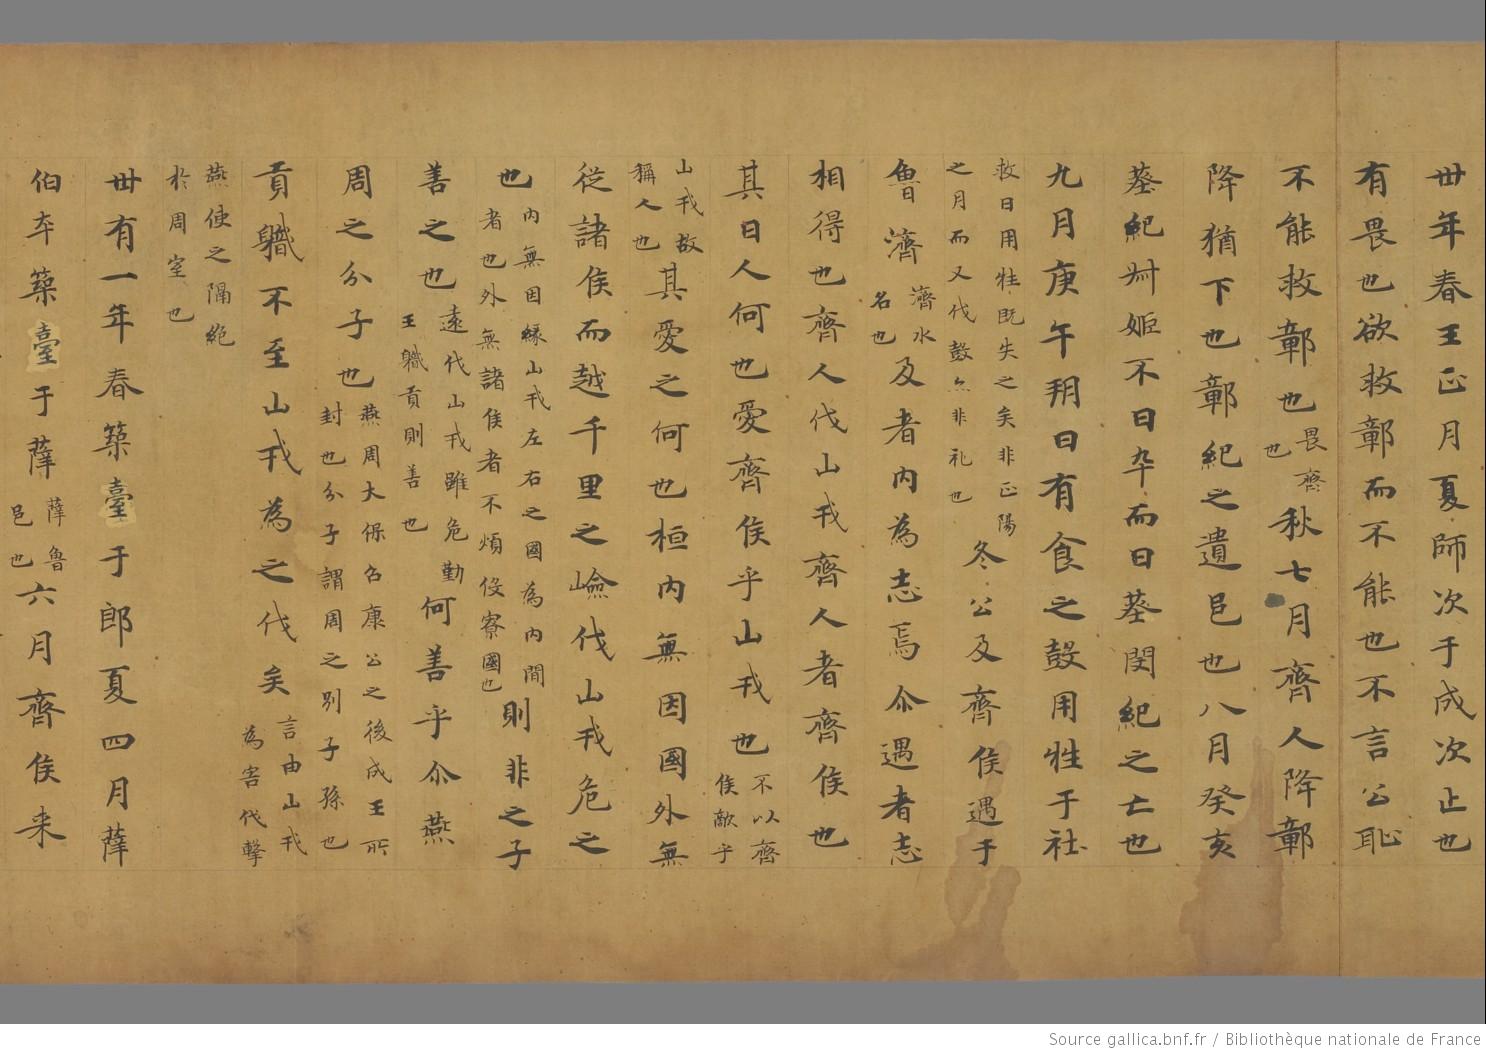 卅年春王正月夏師次于成次止也
有畏也欲救鄣而不能也不言公恥
不能救鄣也畏齊也秋七月齊人降鄣
降猶下也鄣紀之遺邑也八月癸亥
葬紀州姬不日卒而日葬閔紀之亡也
九月庚午朔日有食之鼓用牲于社
救日用牲既失之矣非正陽之月而又伐鼓亦非礼也冬公及齊侯遇于
魯濟濟水名也及者内為志焉尒遇者志
相得也齊人伐山戎齊人者齊侯也
其日人何也愛齊侯乎山戎也不以齊侯敵乎
山戎故稱人也其愛之何也桓内無因國外無
從諸侯而越千里之嶮伐山戎危之
也内無因縁山戎左右之國為内間者也外無諸侯者不煩伇寮國也則非之乎
善之也遠伐山戎雖危勤王軄貢則善也何善乎尒燕
周之分子也燕周大保召康公之後成王所封也分子謂周之别子孫也
貢軄不至山戎為之伐矣言由山戎為害伐擊
燕使之隔絶於周室也
卅有一年春築臺于郎夏四月薛
伯卒築臺于薛薛魯邑也六月齊侯来
Source gallica.bnf.fr / Bibliothèque nationale de France